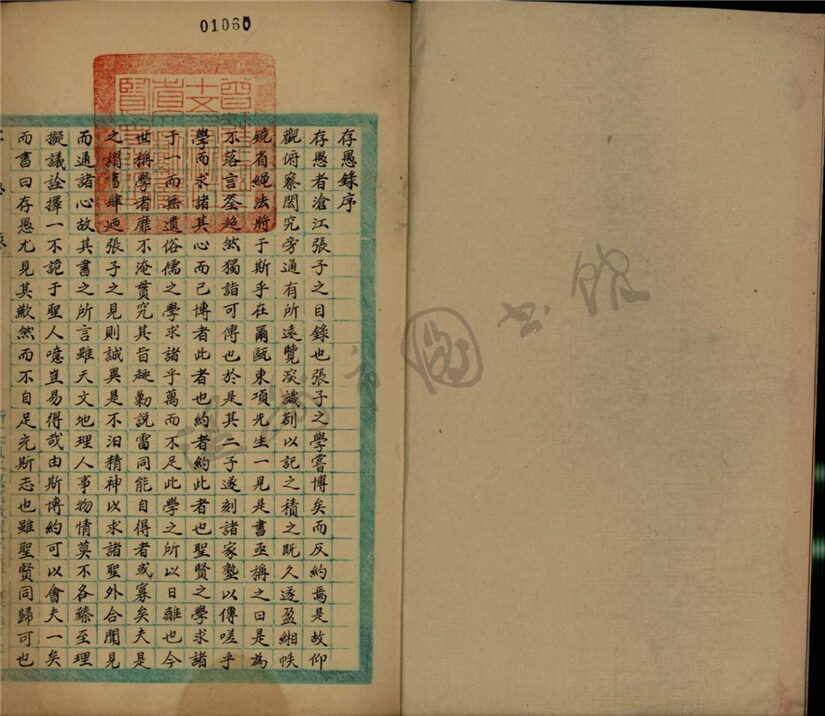 存愚錄序
存愚者滄江張子之日錄也張子之學嘗博矣而反約焉是故仰
觀俯察閎究旁通有所遠覽深識劄以記之積之既久遂盈緗帙
鏡省繩法將于斯乎在爾甌東項先生一見是書亟稱之曰是為
不落言筌超然獨詣可傳也於是其二子遂刻諸家塾以傳嗟乎
學而求諸其心而已博者此者也約者約此者也聖賢之學求諸
于一而無遺俗儒之學求諸乎萬而不足此學之所以日離也今
世稱學者靡不淹貫究其旨趣勦說雷同能自得者或寡矣夫是
之謂書肆迺張子之見則誠異是不汨精神以求諸聖外合聞見
而通諸心故其書之所言雖天文地理人事物情莫不各臻至理
擬議詮擇一不詭于聖人噫豈易得哉由斯博約可以會夫一矣
而書曰存愚尤見其歉然而不自足充斯志也雖聖賢同歸可也
圖書館